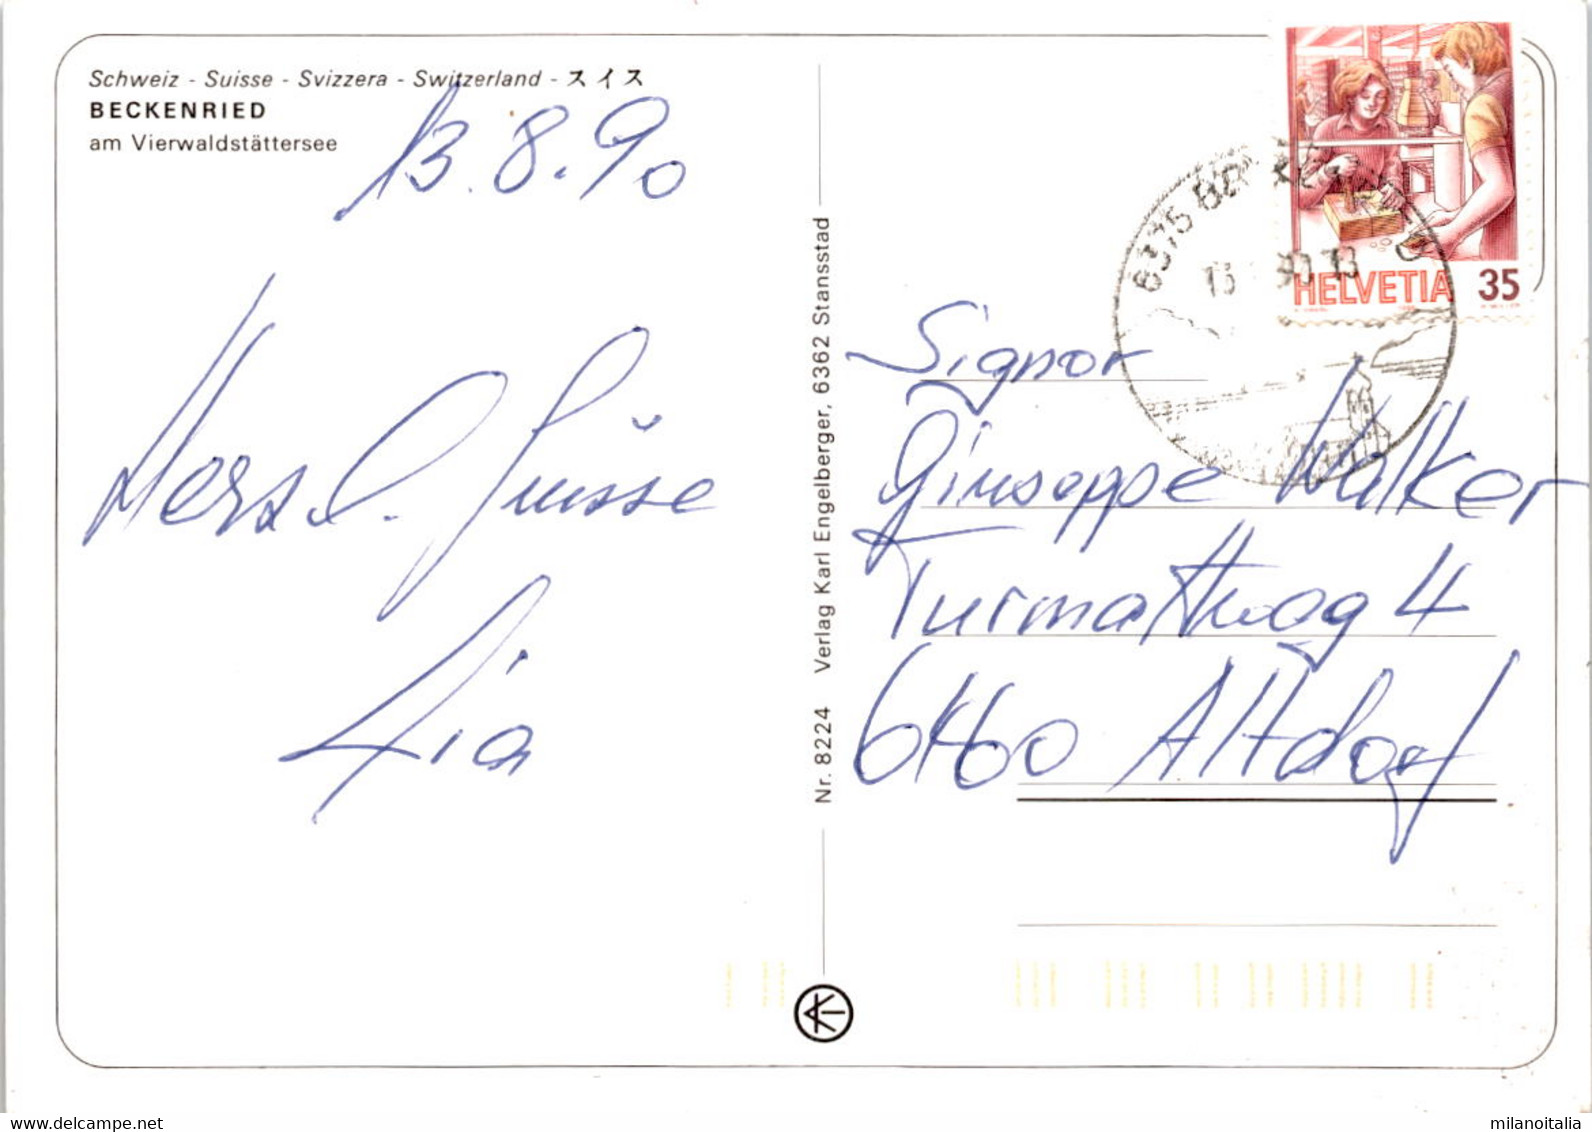 Schweiz - Suisse - Svizzera - Switzerland - スイス
BECKENRIED
am Vierwaldstättersee
13.8.90
Herzl. Grüsse
Pia
Nr. 8224 Verlag Karl Engelberger, 6362 Stansstad
HELVETIA 35
6375 BECKENRIED
13 90 13
Signor
Giuseppe Walker
Turmattweg 4
6460 Altdorf
milanoitalia